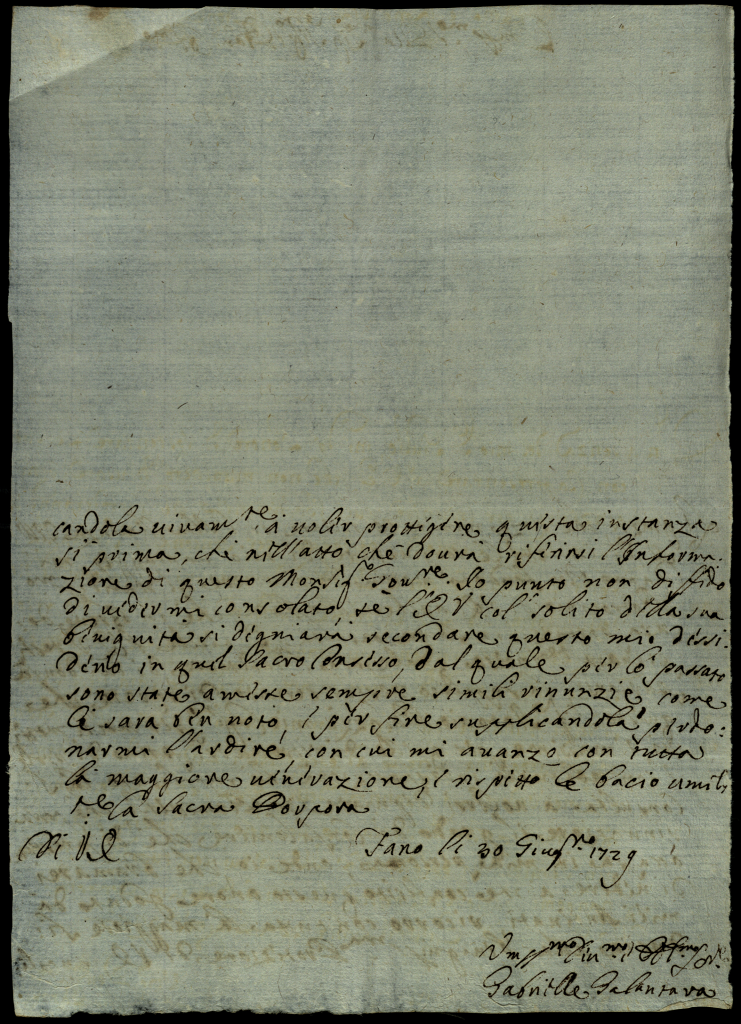 candola vivam.te à voler protegere questa instanza
si prima, che nell'atto che dourà riferirsi l'Informa-
zione di questo Monsig.r Gou.re. Io punto non diffido
di vedermi consolato, se l'E V col solito della sua
benignità si degniarà secondare questo mio dessi-
derio in quel Sacro Consesso, dal quale per lo passato
sono state amesse sempre simili rinunzie, come
le sarà ben noto, e per fine supplicandola à perdo:
narmi l'ardire, con cui mi auanzo con tutta
la maggiore venerazione, e rispetto le bacio umil.
te la Sacra Porpora
Di V.E. Fano li 30 Giug.no 1729
Um.mo Diu.mo Obl.mo Ser.e
Gabrielle Galantara